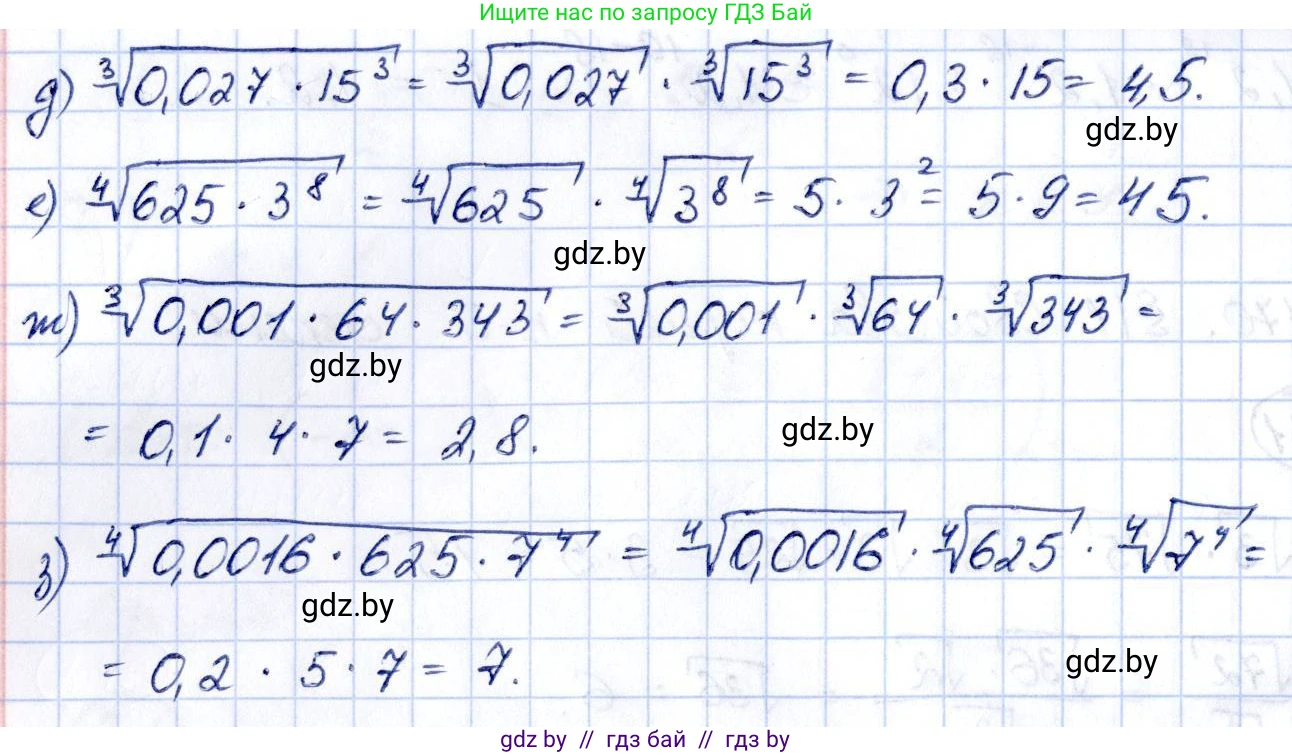 Ищите нас по запросу ГДЗ Бай
д) ∛(0,027 · 15³) = ∛0,027 · ∛15³ = 0,3 · 15 = 4,5.
gdz.by
е) ∜(625 · 3⁸) = ∜625 · ∜3⁸ = 5 · 3² = 5 · 9 = 45.
gdz.by
ж) ∛(0,001 · 64 · 343) = ∛0,001 · ∛64 · ∛343 =
gdz.by
= 0,1 · 4 · 7 = 2,8.
gdz.by
з) ∜(0,0016 · 625 · 7⁴) = ∜0,0016 · ∜625 · ∜7⁴ =
gdz.by
= 0,2 · 5 · 7 = 7.
gdz.by
gdz by // гдз бай // гдз by